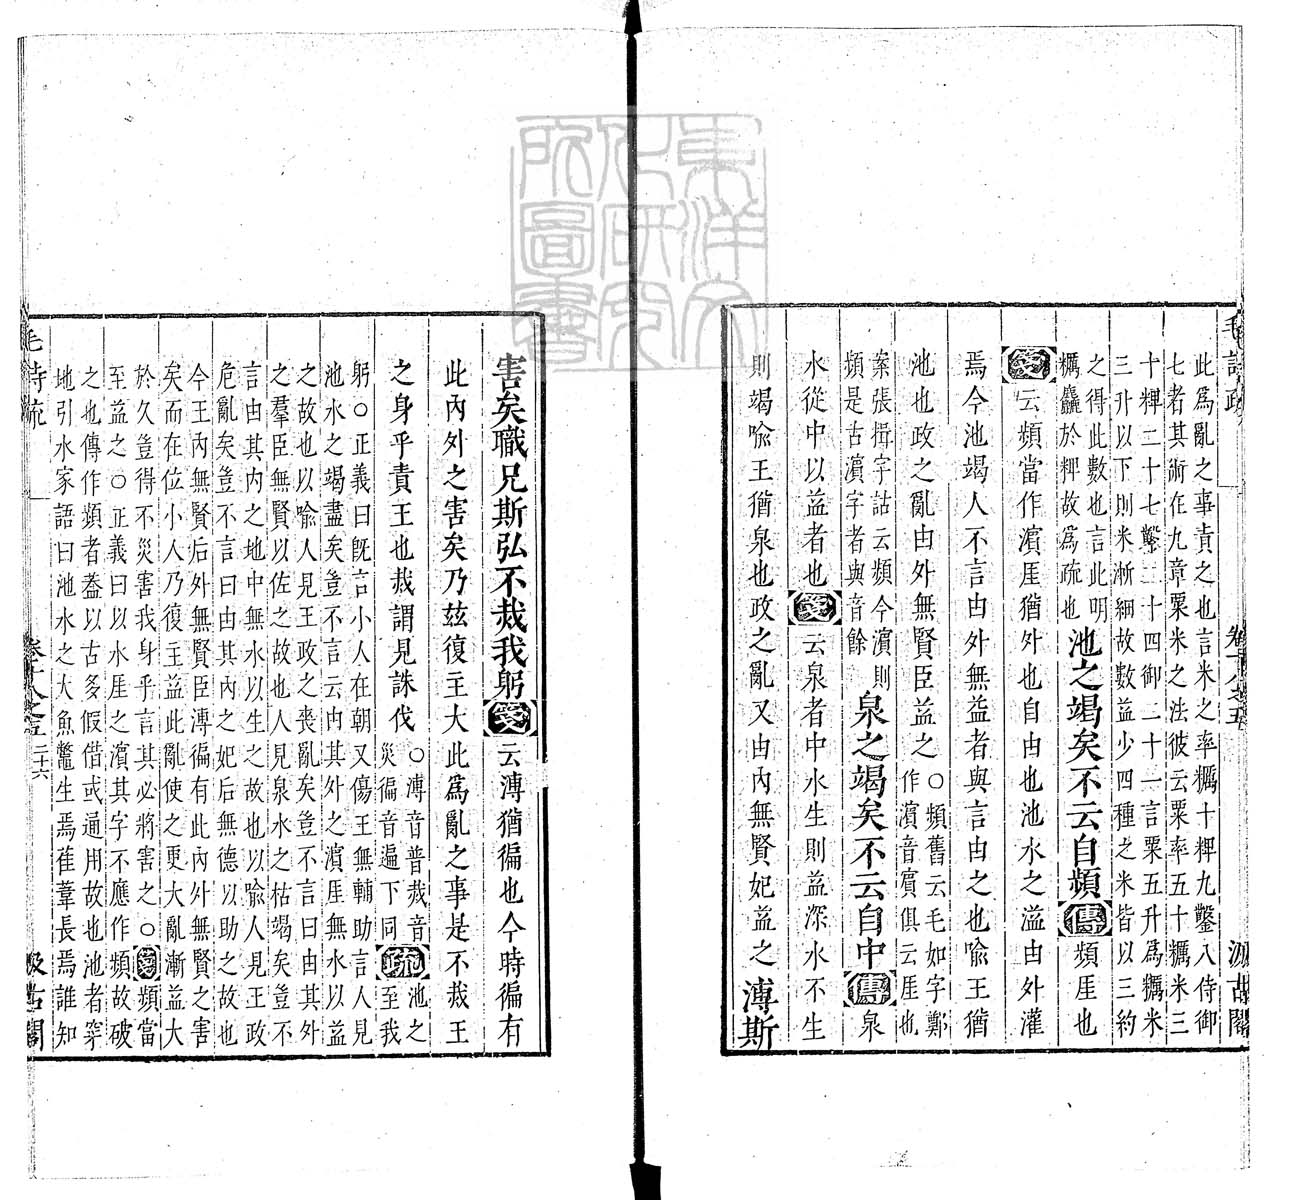 毛詩疏
卷十八之五
汲古閣
此爲亂之事責之也言米之率糲十粺九鑿八侍御
七者其術在九章粟米之法彼云粟率五十糲米三
十粺二十七鑿二十四御二十一言粟五升爲糲米
三升以下則米漸細故數益少四種之米皆以三約
之得此數也言此明
糲麤於粺故爲疏也
池之竭矣不云自頻傳頻厓也
箋云頻當作濱厓猶外也自由也池水之溢由外灌
焉今池竭人不言由外無益者與言由之也喩王猶
池也政之亂由外無賢臣益之
○頻舊云毛如字鄭
作濱音賓俱云厓也
案張揖字詁云頻今濱則
頻是古濱字者與音餘
泉之竭矣不云自中傳泉
水從中以益者也箋云泉者中水生則益深水不生
則竭喩王猶泉也政之亂又由內無賢妃益之溥斯
害矣職兄斯弘不烖我躬箋云溥猶徧也今時徧有
此內外之害矣乃兹復主大此爲亂之事是不烖王
之身乎責王也烖謂見誅伐
○溥音普烖音
災徧音遍下同
疏
池之
至我
躬○正義曰旣言小人在朝又傷王無輔助言人見
池水之竭盡矣豈不言云內其外之濱厓無水以益
之故也以喩人見王政之喪亂矣豈不言曰由其外
之羣臣無賢以佐之故也人見泉水之枯竭矣豈不
言由其內之地中無水以生之故也以喩人見王政
危亂矣豈不言曰由其內之妃后無德以助之故也
今王內無賢后外無賢臣溥徧有此內外無賢之害
矣而在位小人乃復主益此亂使之更大亂漸益大
於久豈得不災害我身乎言其必將害之○箋頻當
至益之○正義曰以水厓之濱其字不應作頻故破
之也傳作頻者蓋以古多假借或通用故也池者穿
地引水家語曰池水之大魚鼈生焉萑葦長焉誰知
毛詩疏
卷十八之五
二十六
汲古閣
東洋文化研究所圖書